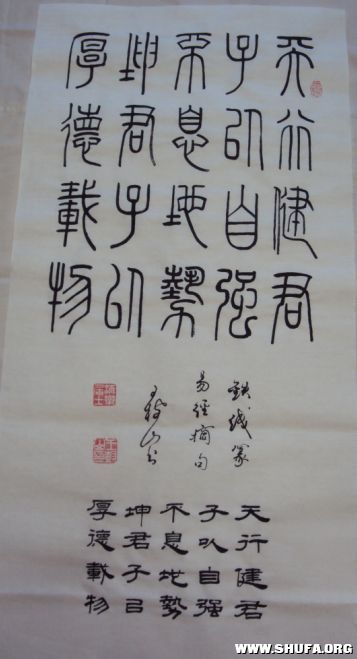 天行健君
子以自强
不息地勢
坤君子以
厚德載物
鉄綫篆
易經摘句
天行健君
子以自强
不息地勢
坤君子㠯
厚德載物
WWW.SHUFA.ORG